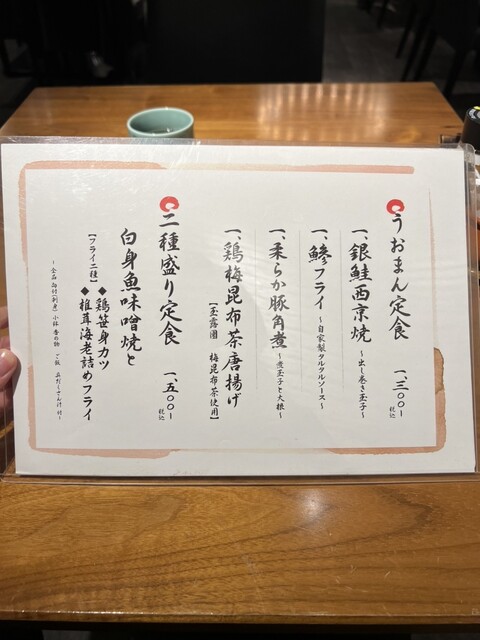 うおまん定食 一、三〇〇- 税込
一、銀鮭西京焼 ~出し巻き玉子~
一、鯵フライ ~自家製タルタルソース~
一、柔らか豚角煮 ~煮玉子と大根~
一、鶏梅昆布茶唐揚げ
【玉露園 梅昆布茶使用】
二種盛り定食 一、五〇〇- 税込
白身魚味噌焼と
【フライ二種】◆鶏笹身カツ
◆椎茸海老詰めフライ
~全品 向付(刺身) 小鉢 香の物 ご飯 具だくさん汁 付~